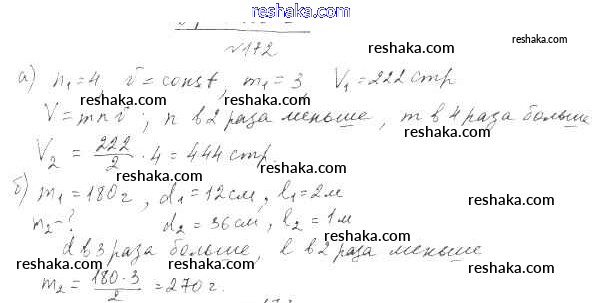 reshaka.com
№172
reshaka.com
а) n₁=4, v̄=const, m₁=3, V₁=222 стр
reshaka.com reshaka.com
V=mnv̄; n в 2 раза меньше, m в 4 раза больше
reshaka.com
V₂ = 222/2 · 4 = 444 стр.
reshaka.com
reshaka.com
б) m₁=180 г, d₁=12 см, l₁=2 м
reshaka.com
m₂-? d₂=36 см, l₂=1 м
reshaka.com
d в 3 раза больше, l в 2 раза меньше
reshaka.com
m₂ = 180·3/2 = 270 г.
reshaka.com
reshaka.com